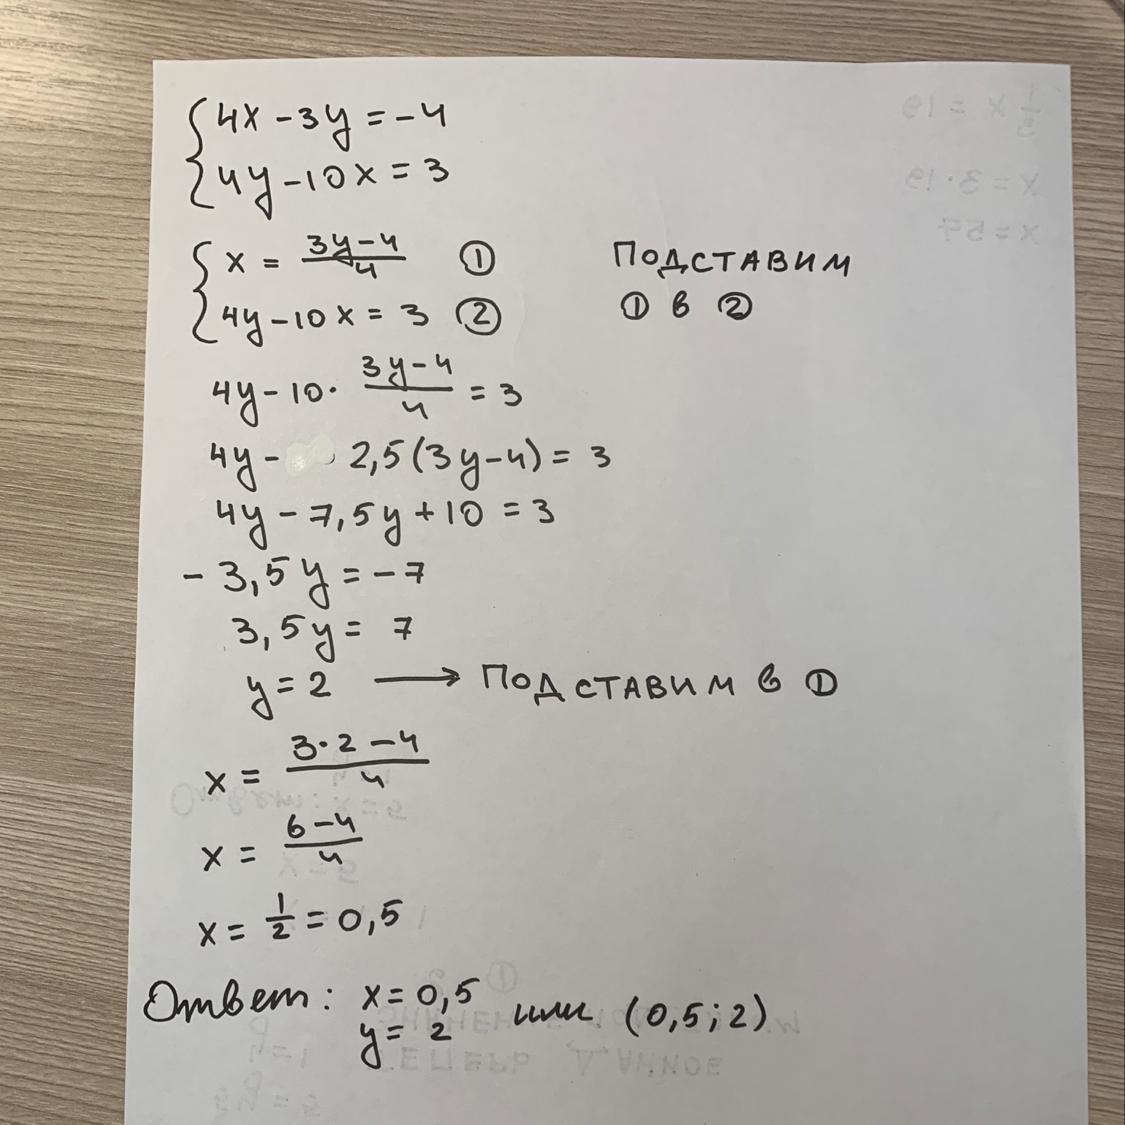 4x - 3y = -4
4y - 10x = 3
x = (3y-4)/4 ① Подставим
4y - 10x = 3 ② ① в ②
4y - 10 · (3y-4)/4 = 3
4y - 2,5(3y-4) = 3
4y - 7,5y + 10 = 3
- 3,5y = -7
3,5y = 7
y = 2 → Подставим в ①
x = (3·2 - 4)/4
x = (6-4)/4
x = 1/2 = 0,5
Ответ: x = 0,5 или (0,5; 2)
y = 2